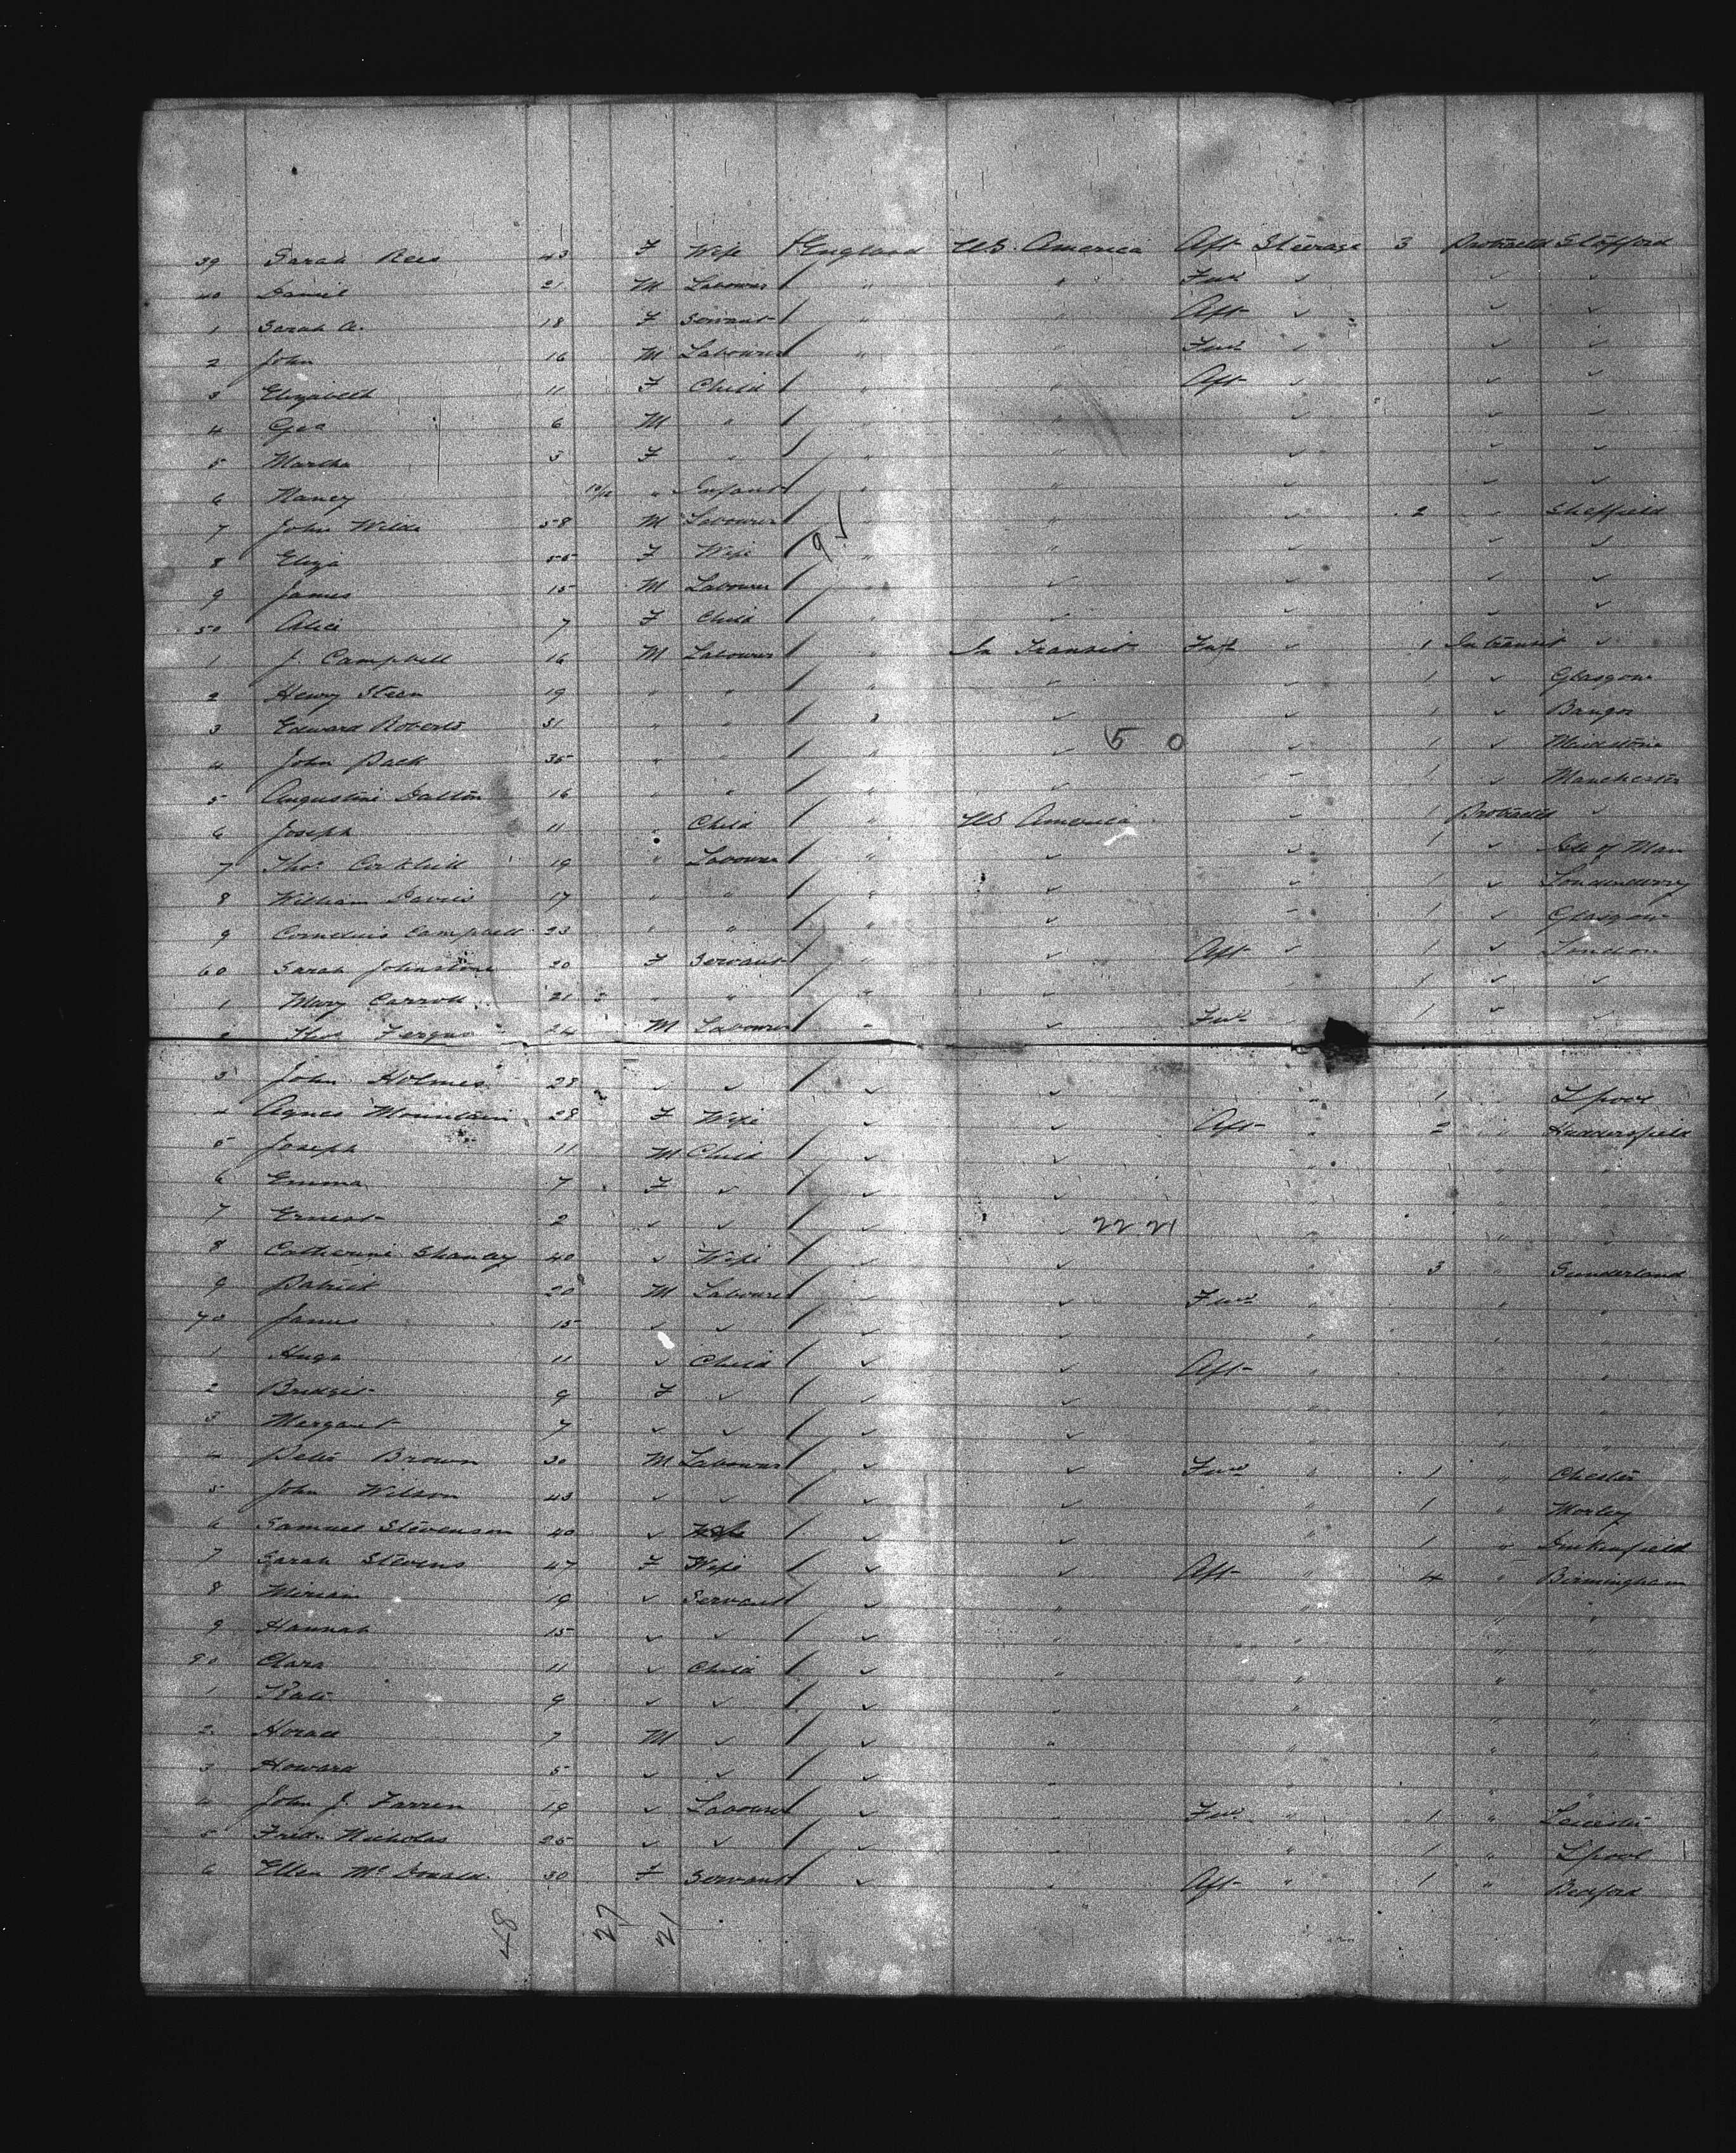 39 Sarah Rees 43 F Wife England U.S. America Aft Steerage 3 Protracted Stafford
40 Daniel 21 M Labourer " " Fwd ✓ ✓ ✓
1 Sarah A. 18 F Servant " " Aft ✓ ✓ ✓
2 John 16 M Labourer " " Fwd ✓ ✓ ✓
3 Elizabeth 11 F Child " " Aft ✓ ✓ ✓
4 Geo 6 M " " " ✓ ✓ ✓
5 Martha 3 F " " " ✓ ✓ ✓
6 Nancy 10/12 " Infant " " ✓ ✓ ✓
7 John Wilde 58 M Labourer " " ✓ 2 " Sheffield
8 Eliza 55 F Wife " " ✓ ✓ ✓
9 James 15 M Labourer " ✓ ✓ ✓ ✓
50 Alice 7 F Child " ✓ ✓ ✓ ✓
1 J. Campbell 16 M Labourer " In Transit Fwd ✓ 1 In transit ✓
2 Henry Steen 19 " " " ✓ ✓ 1 ✓ Glasgow
3 Edward Roberts 31 " " " ✓ ✓ 1 ✓ Bangor
4 John Pack 35 " " " ✓ 50 ✓ 1 ✓ Maidstone
5 Augustine Dalton 16 " " " ✓ ✓ 1 ✓ Manchester
6 Joseph 11 " Child " US America ✓ 1 Protracted ✓
7 Thos. Corkhill 19 " Labourer " ✓ ✓ 1 ✓ Isle of Man
8 William Davies 17 " " " ✓ ✓ 1 ✓ Londonderry
9 Cornelius Campbell 23 " " " ✓ ✓ 1 ✓ Glasgow
60 Sarah Johnstone 20 F Servant " ✓ Aft ✓ 1 ✓ London
1 Mary Carroll 21 " " " ✓ 1 ✓ ✓
2 Thos Fergus 24 M Labourer " ✓ Fwd 1 ✓ ✓
3 John Holmes 28 ✓ ✓ ✓ ✓ " 1 " Lpool
4 Agnes Mountain 28 F Wife ✓ ✓ Aft " 2 " Huddersfield
5 Joseph 11 M Child ✓ ✓ " " "
6 Emma 7 F ✓ ✓ ✓ " " "
7 Ernest 2 ✓ ✓ ✓ ✓ 22 21 " " "
8 Catherine Shanley 40 ✓ Wife ✓ ✓ " 3 " Sunderland
9 Patrick 20 M Labourer ✓ ✓ Fwd " " "
70 James 15 ✓ ✓ ✓ ✓ " " "
1 Hugh 11 ✓ Child ✓ ✓ Aft " " "
2 Bridget 9 F ✓ ✓ ✓ " " "
3 Margaret 7 ✓ ✓ ✓ ✓ " " "
4 Peter Brown 30 M Labourer ✓ ✓ Fwd " 1 " Chester
5 John Wilson 43 ✓ ✓ ✓ ✓ " 1 " Morley
6 Samuel Stevenson 40 ✓ ✓ ✓ " 1 " Dukinfield
7 Sarah Stevens 47 F Wife ✓ ✓ Aft " 4 " Birmingham
8 Miriam 19 ✓ Servant ✓ " " " "
9 Hannah 15 ✓ ✓ ✓ " " " "
80 Clara 11 ✓ Child ✓ " " " "
1 Kate 9 ✓ ✓ ✓ " " " "
2 Horace 7 M ✓ ✓ " " " "
3 Howard 5 ✓ ✓ ✓ " " " "
4 John J. Farren 19 ✓ Labourer ✓ " Fwd " 1 " Leicester
5 Fredk Nicholas 25 ✓ ✓ ✓ " " 1 " Lpool
6 Ellen McDonald 30 F Servant ✓ " Aft " 1 " Bedford
48 27 21